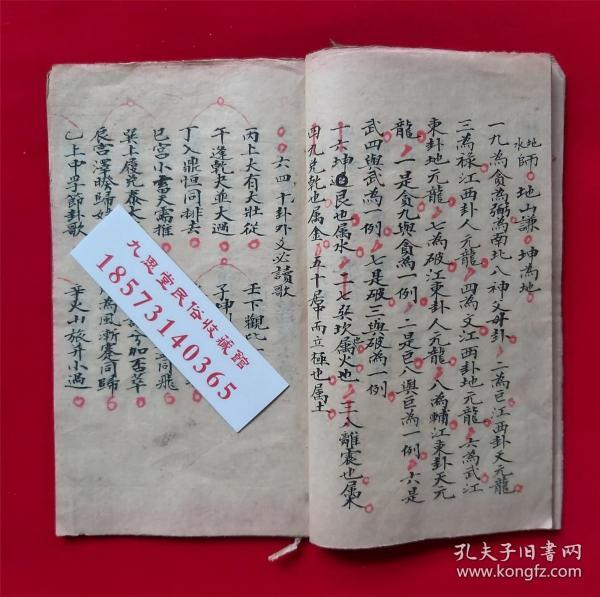 水地師 地山謙 坤為地
一九為貪為弼為南北八神父母卦 二為巨江西卦天元龍
三為祿江西卦人元龍 四為文江西卦地元龍 六為武江
東卦地元龍 七為破江東卦人元龍 八為輔江東卦天元
龍 一是貪九與貪為一例 二是巨八與巨為一例 六是
武四與武為一例 七是破三與破為一例
一六坤艮也属水 二七巽坎属火也 三八離震也属木
四九兌乾也属金 五十居中而立極也属土
六四十卦外爻必讀歌
丙上大有大壯從
午逢乾夬並大過
丁入鼎恒同排去
巳宮小畜天需推
巽上履兌泰大
辰宮澤睽歸妹
乙上中孚節卦歌
壬下觀比
子坤
同飛
加否萃
為風漸蹇同歸
辛火山旅并小過
九思堂民俗收藏館
18573140365
孔夫子旧书网
www.kongfz.com